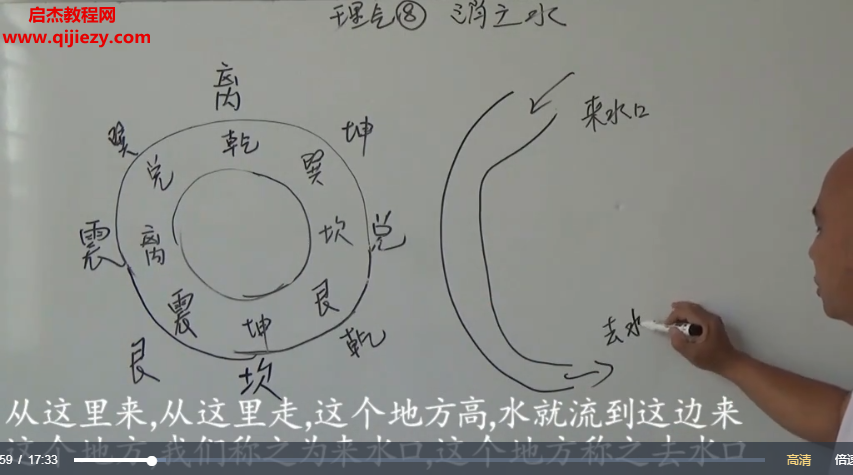 启杰教程网
www.qijiezy.com
理气⑧ 消立水
离
巽 乾 坤
兑 巽
震 离 坎 兑
震 坤 艮
艮 坎 乾
来水口
去水
从这里来,从这里走,这个地方高,水就流到这边来
这个地方,我们称之为来水口,这个地方称之去水口
59 / 17:33
高清
倍速